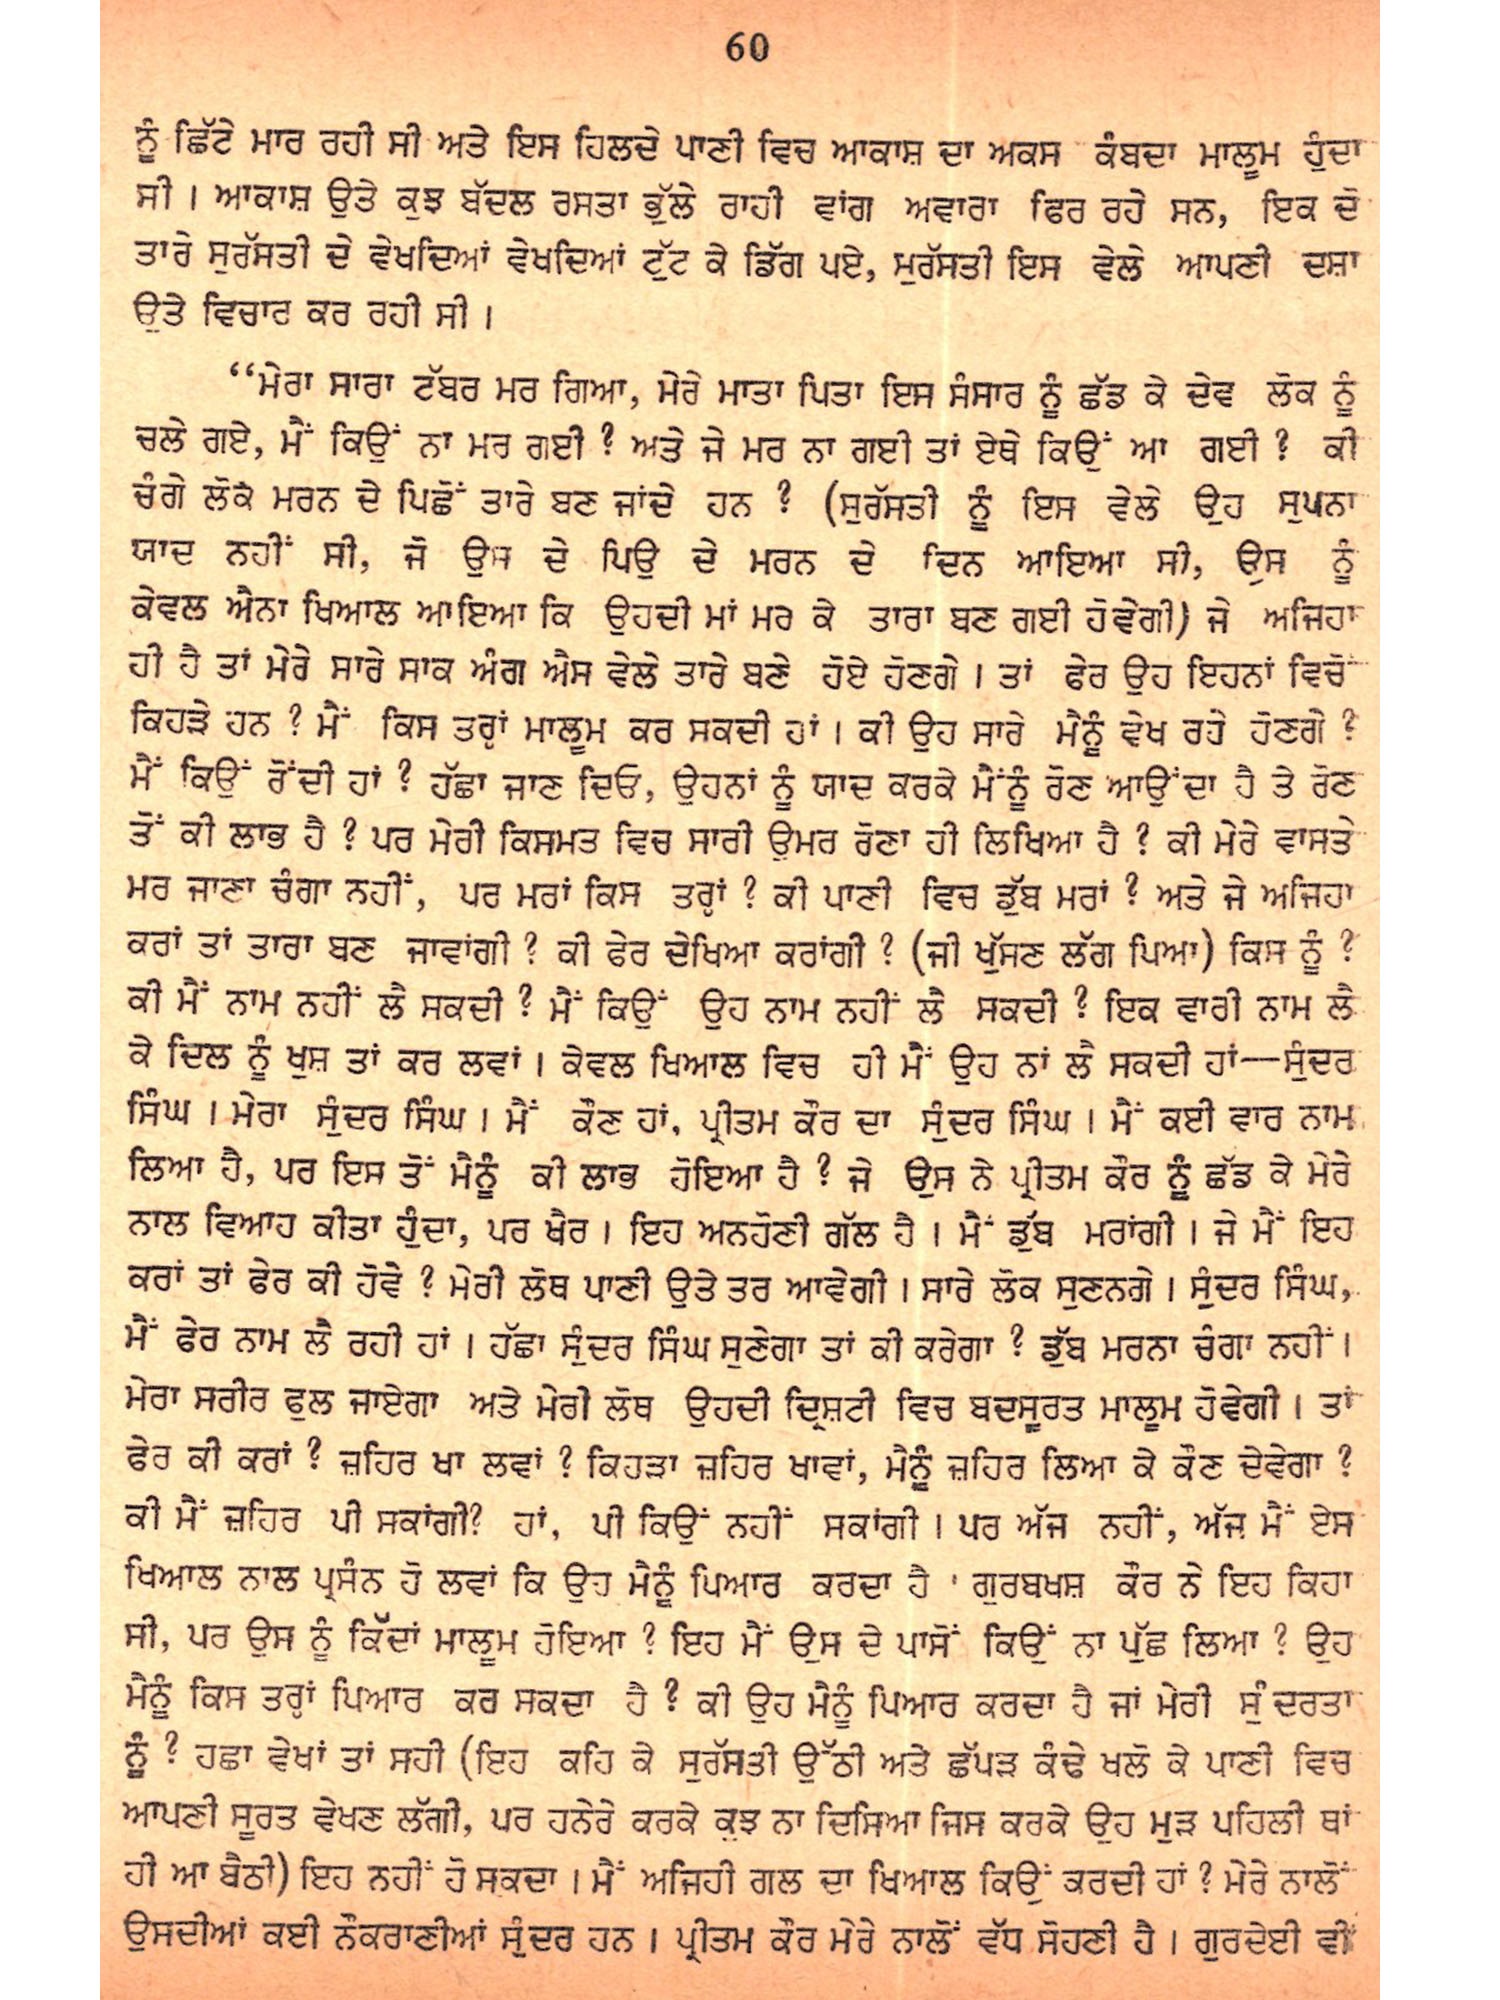 60
ਨੂੰ ਛਿੱਟੇ ਮਾਰ ਰਹੀ ਸੀ ਅਤੇ ਇਸ ਹਿਲਦੇ ਪਾਣੀ ਵਿਚ ਆਕਾਸ਼ ਦਾ ਅਕਸ ਕੰਬਦਾ ਮਾਲੂਮ ਹੁੰਦਾ
ਸੀ । ਆਕਾਸ਼ ਉਤੇ ਕੁਝ ਬੱਦਲ ਰਸਤਾ ਭੁੱਲੇ ਰਾਹੀ ਵਾਂਗ ਅਵਾਰਾ ਫਿਰ ਰਹੇ ਸਨ, ਇਕ ਦੋ
ਤਾਰੇ ਸੁਰੱਸਤੀ ਦੇ ਵੇਖਦਿਆਂ ਵੇਖਦਿਆਂ ਟੁੱਟ ਕੇ ਡਿੱਗ ਪਏ, ਸੁਰੱਸਤੀ ਇਸ ਵੇਲੇ ਆਪਣੀ ਦਸ਼ਾ
ਉਤੇ ਵਿਚਾਰ ਕਰ ਰਹੀ ਸੀ ।
“ਮੇਰਾ ਸਾਰਾ ਟੱਬਰ ਮਰ ਗਿਆ, ਮੇਰੇ ਮਾਤਾ ਪਿਤਾ ਇਸ ਸੰਸਾਰ ਨੂੰ ਛੱਡ ਕੇ ਦੇਵ ਲੋਕ ਨੂੰ
ਚਲੇ ਗਏ, ਮੈਂ ਕਿਉਂ ਨਾ ਮਰ ਗਈ ? ਅਤੇ ਜੇ ਮਰ ਨਾ ਗਈ ਤਾਂ ਏਥੇ ਕਿਉਂ ਆ ਗਈ ? ਕੀ
ਚੰਗੇ ਲੋਕ ਮਰਨ ਦੇ ਪਿਛੋਂ ਤਾਰੇ ਬਣ ਜਾਂਦੇ ਹਨ ? (ਸੁਰੱਸਤੀ ਨੂੰ ਇਸ ਵੇਲੇ ਉਹ ਸੁਪਨਾ
ਯਾਦ ਨਹੀਂ ਸੀ, ਜੋ ਉਸ ਦੇ ਪਿਉ ਦੇ ਮਰਨ ਦੇ ਦਿਨ ਆਇਆ ਸੀ, ਉਸ ਨੂੰ
ਕੇਵਲ ਐਨਾ ਖਿਆਲ ਆਇਆ ਕਿ ਉਹਦੀ ਮਾਂ ਮਰ ਕੇ ਤਾਰਾ ਬਣ ਗਈ ਹੋਵੇਗੀ) ਜੇ ਅਜਿਹਾ
ਹੀ ਹੈ ਤਾਂ ਮੇਰੇ ਸਾਰੇ ਸਾਕ ਅੰਗ ਐਸ ਵੇਲੇ ਤਾਰੇ ਬਣੇ ਹੋਏ ਹੋਣਗੇ । ਤਾਂ ਫੇਰ ਉਹ ਇਹਨਾਂ ਵਿਚੋਂ
ਕਿਹੜੇ ਹਨ ? ਮੈਂ ਕਿਸ ਤਰ੍ਹਾਂ ਮਾਲੂਮ ਕਰ ਸਕਦੀ ਹਾਂ । ਕੀ ਉਹ ਸਾਰੇ ਮੈਨੂੰ ਵੇਖ ਰਹੇ ਹੋਣਗੇ ?
ਮੈਂ ਕਿਉਂ ਰੋਂਦੀ ਹਾਂ ? ਹੱਛਾ ਜਾਣ ਦਿਓ, ਉਹਨਾਂ ਨੂੰ ਯਾਦ ਕਰਕੇ ਮੈਂਨੂੰ ਰੋਣ ਆਉਂਦਾ ਹੈ ਤੇ ਰੋਣ
ਤੋਂ ਕੀ ਲਾਭ ਹੈ ? ਪਰ ਮੇਰੀ ਕਿਸਮਤ ਵਿਚ ਸਾਰੀ ਉਮਰ ਰੋਣਾ ਹੀ ਲਿਖਿਆ ਹੈ ? ਕੀ ਮੇਰੇ ਵਾਸਤੇ
ਮਰ ਜਾਣਾ ਚੰਗਾ ਨਹੀਂ, ਪਰ ਮਰਾਂ ਕਿਸ ਤਰ੍ਹਾਂ ? ਕੀ ਪਾਣੀ ਵਿਚ ਡੁੱਬ ਮਰਾਂ ? ਅਤੇ ਜੇ ਅਜਿਹਾ
ਕਰਾਂ ਤਾਂ ਤਾਰਾ ਬਣ ਜਾਵਾਂਗੀ ? ਕੀ ਫੇਰ ਦੇਖਿਆ ਕਰਾਂਗੀ ? (ਜੀ ਖੁੱਸਣ ਲੱਗ ਪਿਆ) ਕਿਸ ਨੂੰ ?
ਕੀ ਮੈਂ ਨਾਮ ਨਹੀਂ ਲੈ ਸਕਦੀ ? ਮੈਂ ਕਿਉਂ ਉਹ ਨਾਮ ਨਹੀਂ ਲੈ ਸਕਦੀ ? ਇਕ ਵਾਰੀ ਨਾਮ ਲੈ
ਕੇ ਦਿਲ ਨੂੰ ਖੁਸ਼ ਤਾਂ ਕਰ ਲਵਾਂ । ਕੇਵਲ ਖਿਆਲ ਵਿਚ ਹੀ ਮੈਂ ਉਹ ਨਾਂ ਲੈ ਸਕਦੀ ਹਾਂ—ਸੁੰਦਰ
ਸਿੰਘ । ਮੇਰਾ ਸੁੰਦਰ ਸਿੰਘ । ਮੈਂ ਕੌਣ ਹਾਂ, ਪ੍ਰੀਤਮ ਕੌਰ ਦਾ ਸੁੰਦਰ ਸਿੰਘ । ਮੈਂ ਕਈ ਵਾਰ ਨਾਮ
ਲਿਆ ਹੈ, ਪਰ ਇਸ ਤੋਂ ਮੈਨੂੰ ਕੀ ਲਾਭ ਹੋਇਆ ਹੈ ? ਜੇ ਉਸ ਨੇ ਪ੍ਰੀਤਮ ਕੌਰ ਨੂੰ ਛੱਡ ਕੇ ਮੇਰੇ
ਨਾਲ ਵਿਆਹ ਕੀਤਾ ਹੁੰਦਾ, ਪਰ ਖੈਰ । ਇਹ ਅਨਹੋਣੀ ਗੱਲ ਹੈ । ਮੈਂ ਡੁੱਬ ਮਰਾਂਗੀ । ਜੇ ਮੈਂ ਇਹ
ਕਰਾਂ ਤਾਂ ਫੇਰ ਕੀ ਹੋਵੇ ? ਮੇਰੀ ਲੋਥ ਪਾਣੀ ਉਤੇ ਤਰ ਆਵੇਗੀ । ਸਾਰੇ ਲੋਕ ਸੁਣਨਗੇ । ਸੁੰਦਰ ਸਿੰਘ,
ਮੈਂ ਫੇਰ ਨਾਮ ਲੈ ਰਹੀ ਹਾਂ । ਹੱਛਾ ਸੁੰਦਰ ਸਿੰਘ ਸੁਣੇਗਾ ਤਾਂ ਕੀ ਕਰੇਗਾ ? ਡੁੱਬ ਮਰਨਾ ਚੰਗਾ ਨਹੀਂ ।
ਮੇਰਾ ਸਰੀਰ ਫੁਲ ਜਾਏਗਾ ਅਤੇ ਮੇਰੀ ਲੋਥ ਉਹਦੀ ਦ੍ਰਿਸ਼ਟੀ ਵਿਚ ਬਦਸੂਰਤ ਮਾਲੂਮ ਹੋਵੇਗੀ । ਤਾਂ
ਫੇਰ ਕੀ ਕਰਾਂ ? ਜ਼ਹਿਰ ਖਾ ਲਵਾਂ ? ਕਿਹੜਾ ਜ਼ਹਿਰ ਖਾਵਾਂ, ਮੈਨੂੰ ਜ਼ਹਿਰ ਲਿਆ ਕੇ ਕੌਣ ਦੇਵੇਗਾ ?
ਕੀ ਮੈਂ ਜ਼ਹਿਰ ਪੀ ਸਕਾਂਗੀ? ਹਾਂ, ਪੀ ਕਿਉਂ ਨਹੀਂ ਸਕਾਂਗੀ । ਪਰ ਅੱਜ ਨਹੀਂ, ਅੱਜ ਮੈਂ ਏਸ
ਖਿਆਲ ਨਾਲ ਪ੍ਰਸੰਨ ਹੋ ਲਵਾਂ ਕਿ ਉਹ ਮੈਨੂੰ ਪਿਆਰ ਕਰਦਾ ਹੈ । ਗੁਰਬਖਸ਼ ਕੌਰ ਨੇ ਇਹ ਕਿਹਾ
ਸੀ, ਪਰ ਉਸ ਨੂੰ ਕਿੱਦਾਂ ਮਾਲੂਮ ਹੋਇਆ ? ਇਹ ਮੈਂ ਉਸ ਦੇ ਪਾਸੋਂ ਕਿਉਂ ਨਾ ਪੁੱਛ ਲਿਆ ? ਉਹ
ਮੈਨੂੰ ਕਿਸ ਤਰ੍ਹਾਂ ਪਿਆਰ ਕਰ ਸਕਦਾ ਹੈ ? ਕੀ ਉਹ ਮੈਨੂੰ ਪਿਆਰ ਕਰਦਾ ਹੈ ਜਾਂ ਮੇਰੀ ਸੁੰਦਰਤਾ
ਨੂੰ ? ਹਛਾ ਵੇਖਾਂ ਤਾਂ ਸਹੀ (ਇਹ ਕਹਿ ਕੇ ਸੁਰੱਸਤੀ ਉੱਠੀ ਅਤੇ ਛੱਪੜ ਕੰਢੇ ਖਲੋ ਕੇ ਪਾਣੀ ਵਿਚ
ਆਪਣੀ ਸੂਰਤ ਵੇਖਣ ਲੱਗੀ, ਪਰ ਹਨੇਰੇ ਕਰਕੇ ਕੁਝ ਨਾ ਦਿਸਿਆ ਜਿਸ ਕਰਕੇ ਉਹ ਮੁੜ ਪਹਿਲੀ ਥਾਂ
ਹੀ ਆ ਬੈਠੀ) ਇਹ ਨਹੀਂ ਹੋ ਸਕਦਾ । ਮੈਂ ਅਜਿਹੀ ਗਲ ਦਾ ਖਿਆਲ ਕਿਉਂ ਕਰਦੀ ਹਾਂ ? ਮੇਰੇ ਨਾਲੋਂ
ਉਸਦੀਆਂ ਕਈ ਨੌਕਰਾਣੀਆਂ ਸੁੰਦਰ ਹਨ । ਪ੍ਰੀਤਮ ਕੌਰ ਮੇਰੇ ਨਾਲੋਂ ਵੱਧ ਸੋਹਣੀ ਹੈ । ਗੁਰਦੇਈ ਵੀ